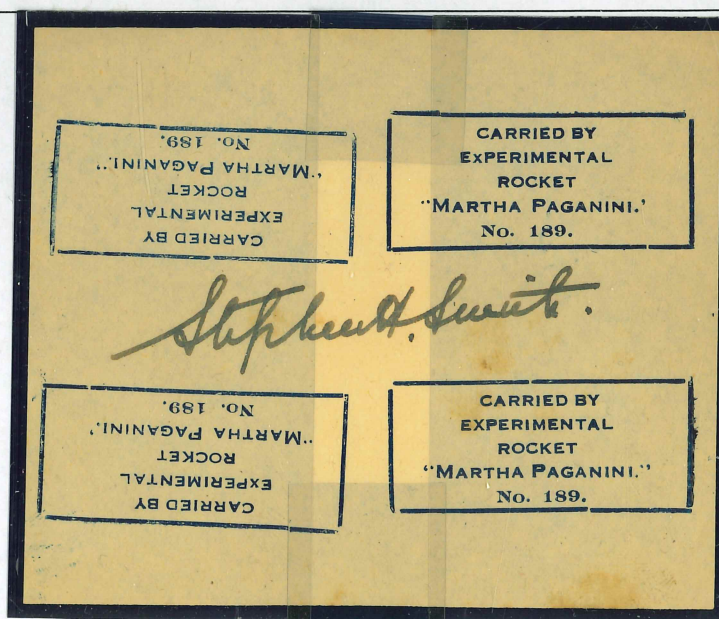 CARRIED BY
EXPERIMENTAL
ROCKET
"MARTHA PAGANINI."
No. 189.
CARRIED BY
EXPERIMENTAL
ROCKET
"MARTHA PAGANINI.'
No. 189.
Stephen H. Smith.
CARRIED BY
EXPERIMENTAL
ROCKET
"MARTHA PAGANINI.'
No. 189.
CARRIED BY
EXPERIMENTAL
ROCKET
"MARTHA PAGANINI."
No. 189.